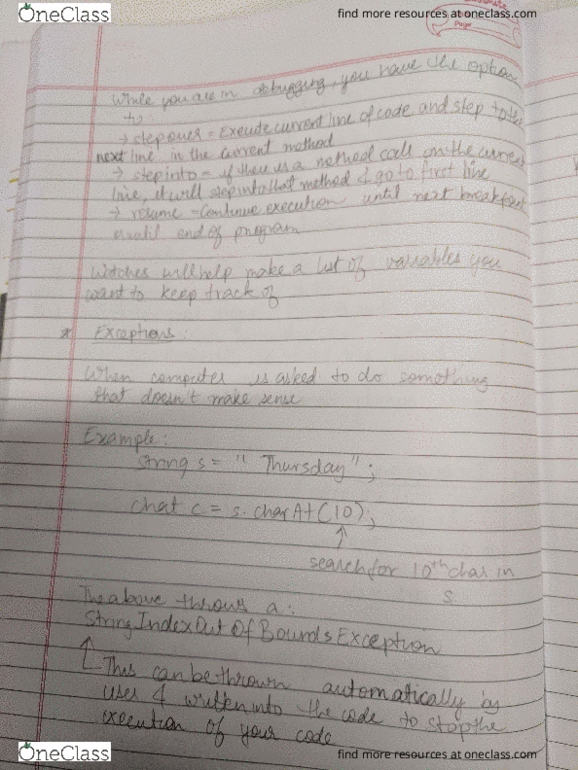 OneClass
find more resources at oneclass.com
Page
While you are in debugging, you have the option
to
→ stepover = Execute current line of code and step to the
next line in the current method
→ step into = if there is a method call on the current
line, it will step into that method & go to first line
→ resume = Continue execution until next breakpoint
or until end of program
Watches will help make a list of variables you
want to keep track of
* Exceptions:
When computer is asked to do something
that doesn't make sense
Example:
String s = " Thursday";
char c = s.charAt(10);
↑
search for 10th char in
s.
The above throws a:
StringIndexOutOfBoundsException
This can be thrown automatically by
user & written into the code to stop the
execution of your code
OneClass
find more resources at oneclass.com